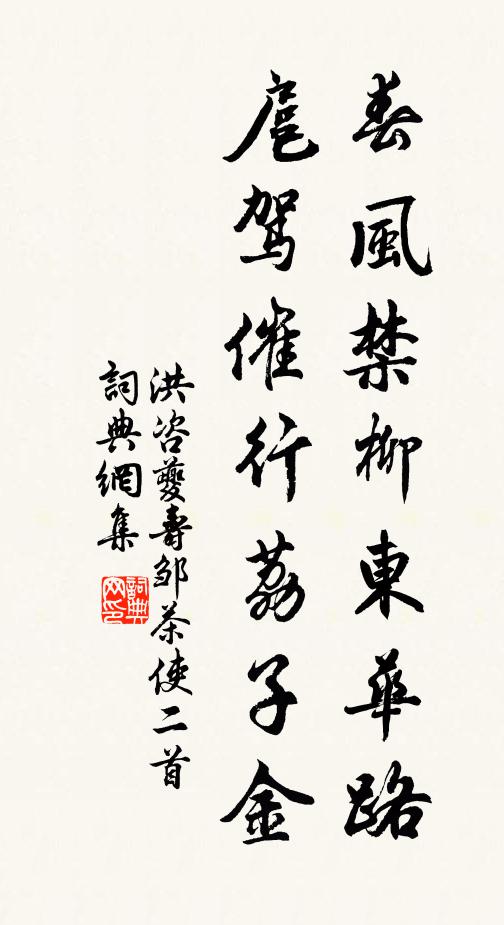 春風禁柳東華路
扈駕催行荔子金
洪咨夔壽邹茶使二首
詞典網集
詞典网印